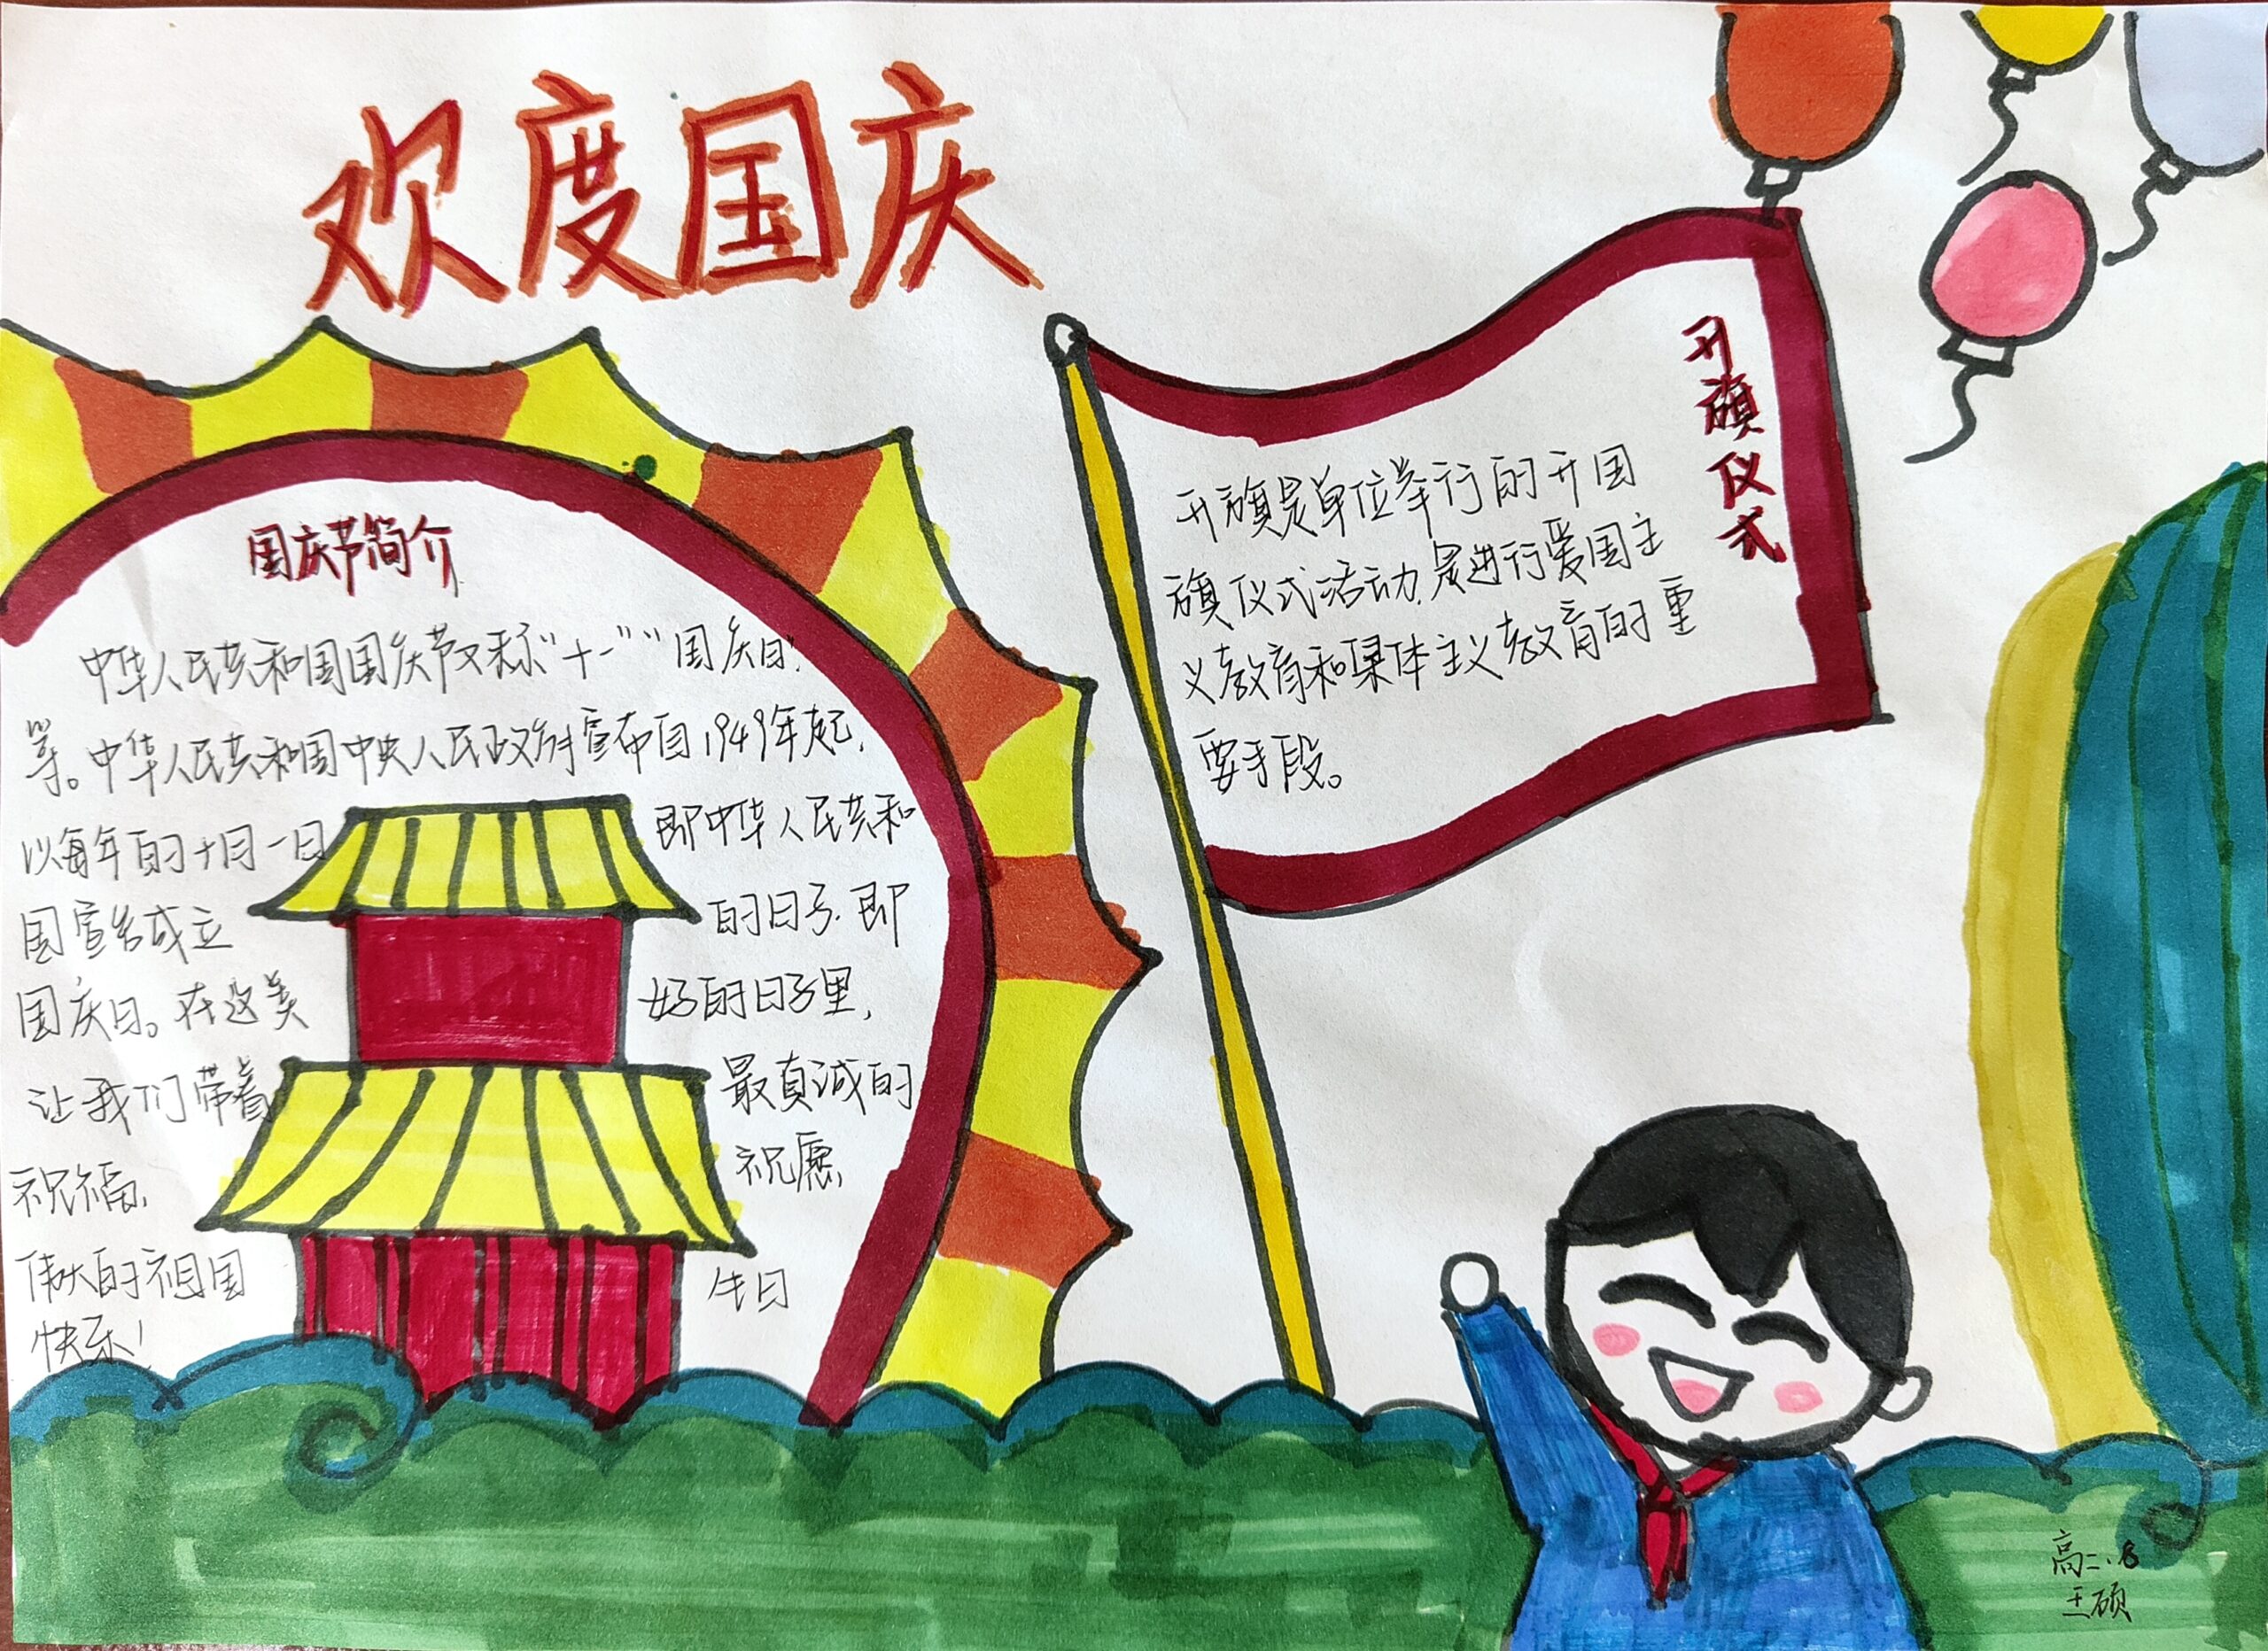 欢度国庆
国庆节简介
中华人民共和国国庆节又称"十一""国庆日"
等。中华人民共和国中央人民政府宣布自1949年起,
以每年的十月一日 即中华人民共和
国宣告成立 的日子,即
国庆日。在这美 好的日子里,
让我们带着 最真诚的
祝福, 祝愿
伟大的祖国 生日
快乐!
升旗仪式
升旗是单位举行的升国
旗仪式活动,是进行爱国主
义教育和集体主义教育的重
要手段。
高二.8
王硕